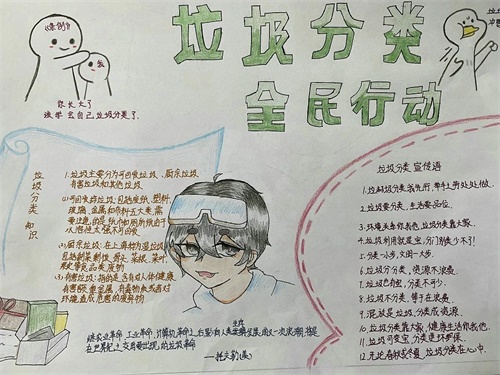 垃圾分类
全民行动
你长大了
该学会自己垃圾分类了.
垃圾分类知识
1.垃圾主要分为可回收垃圾、厨余垃圾
有害垃圾和其他垃圾
(1)可回收垃圾:包括废纸,塑料,
玻璃,金属和布料五大类.需
(2)厨余垃圾:在上海称为湿垃圾
果皮等食品类废物
(3)有害垃圾:指的是含有对人体健康
有害的重金属,有毒物质或者对
环境造成危害的废弃物
继农业革命,工业革命,计算机革命之后,影响人类生存发展的又一次浪潮,将是
在世界纪之交时要出现的垃圾革命
——托夫勒(美)
垃圾分类 宣传语
1.垃圾分类我先行,举手之劳处处做.
2.垃圾要分类,生活要品位.
3.环境连着你我他,垃圾分类靠大家.
4.垃圾利用就是宝,分门别类少不了!
5.分类一小步,文明一大步.
6.垃圾分分类,资源不浪费.
7.垃圾也有家,分类不可少.
8.垃圾不分类,等于在浪费.
9.混放是垃圾,分类成资源.
10.垃圾分类靠大家,健康生活你我他.
11.垃圾可变宝,分类更环保.
12.无论春秋或冬夏,垃圾分类在心中.